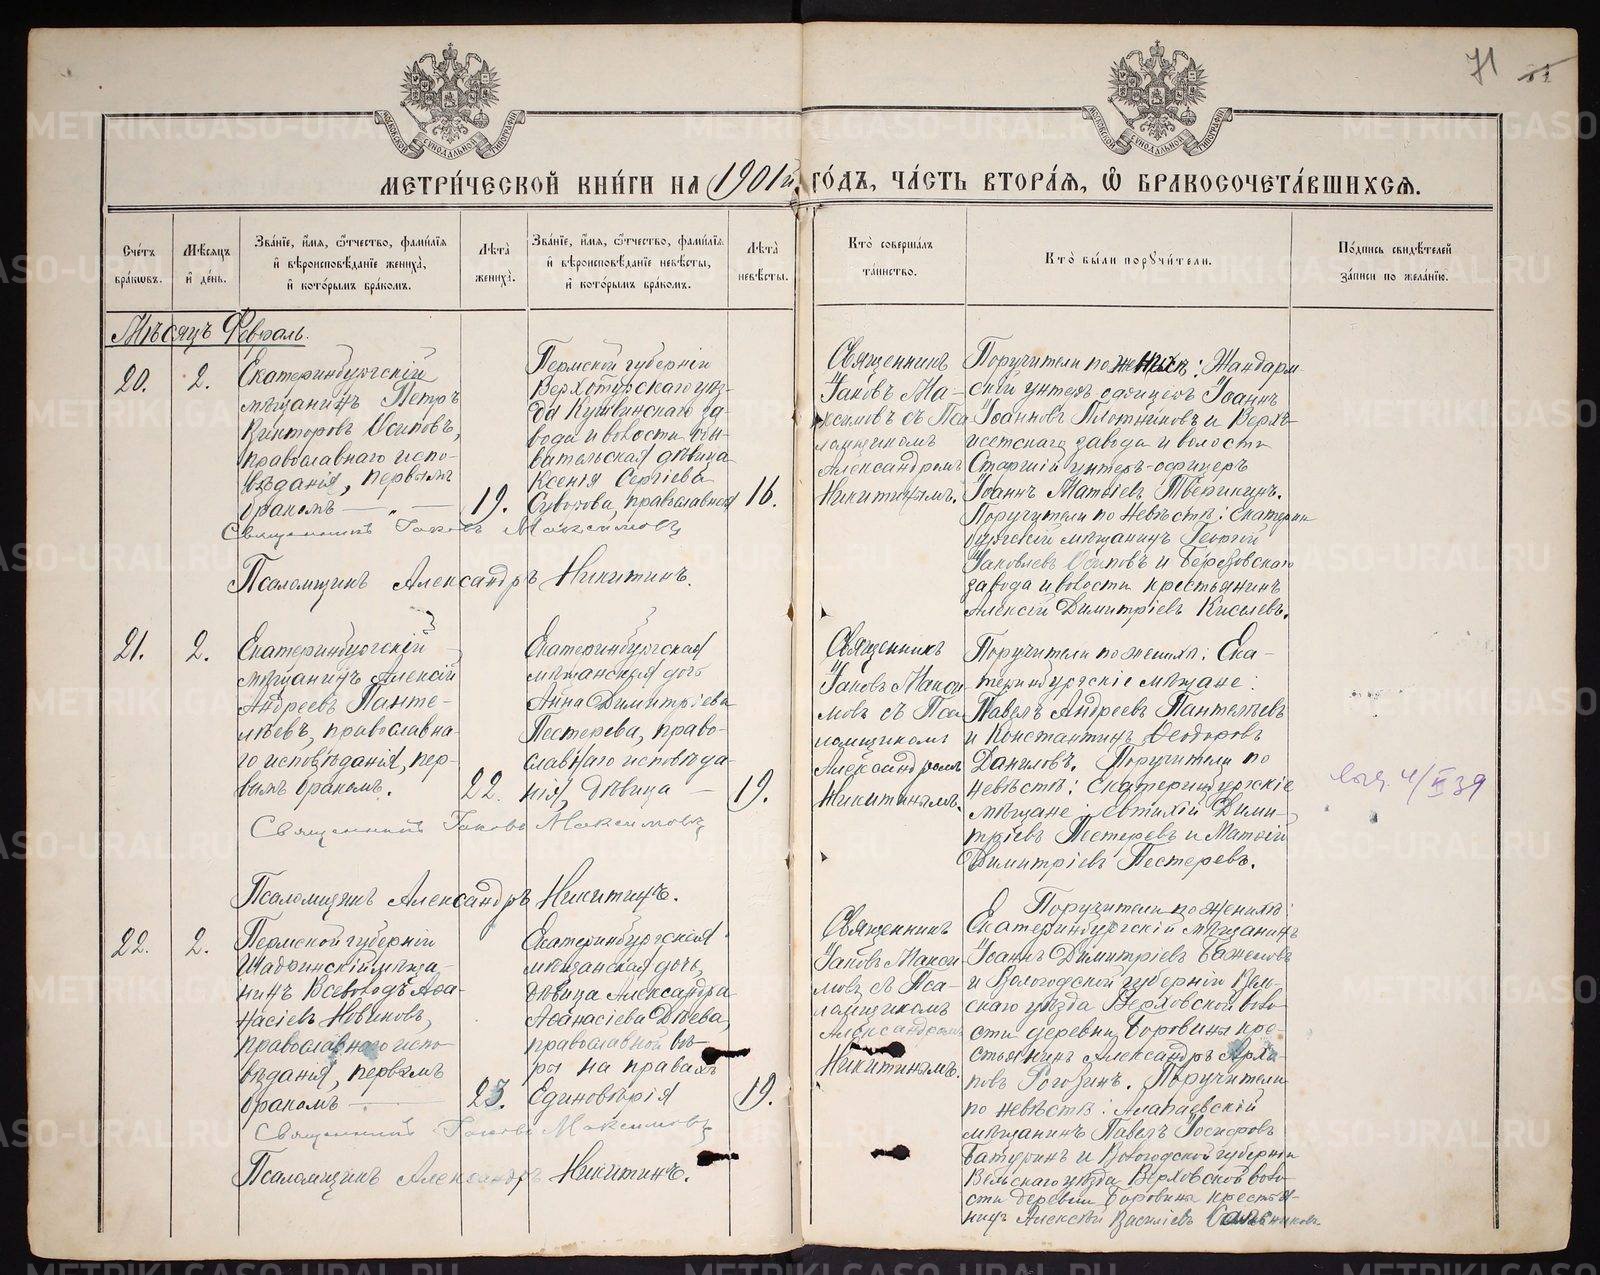 71
МЕТРИ́ЧЕСКОЙ КНИ́ГИ НА 1901й. ГО́ДЪ, ЧА́СТЬ ВТОРА́Я, Ѿ БРАКОСОЧЕТА́ВШИХСЯ.
Сче́тъ бра́ковъ.
Мѣ́сяцъ и́ де́нь.
Зва́нїе, и́мя, ѻ́тчество, фами́лїя и́ вѣроисповѣ́данїе жениха̀, и́ кото́рымъ бра́комъ.
Лѣ́та жениха̀.
Зва́нїе, и́мя, ѻ́тчество, фами́лїя и́ вѣроисповѣ́данїе невѣ́сты, и́ кото́рымъ бра́комъ.
Лѣ́та невѣ́сты.
Кто̀ соверша́лъ та́инство.
Кто̀ бы́ли пор𐲣чи́тели.
По́дпись свидѣ́телей за́писи по жела́нїю.
Мѣсяцъ Февраль.
20.
2.
Екатеринбургскій
мѣщанинъ Петръ
Викторовъ Осиповъ,
православнаго испо-
вѣданія, первымъ
бракомъ
19.
Пермской губерніи
Верхотурскаго уѣз-
да Кушвинскаго за-
вода и волости обы-
вательская дѣвица
Ксенія Сергіева
Суворова, православная
16.
Священникъ
Іаковъ Ма-
ксимовъ съ Пса
ломщикомъ
Александромъ
Никитинымъ.
Поручители по женихѣ: Жандарм-
скій унтеръ офицеръ Іоаннъ
Іоанновъ Плотниковъ и Верхъ
исетскаго завода и волости
Старшій унтеръ-офицеръ
Іоаннъ Матѳіевъ
Поручители по невѣстѣ: Екатерин
бургскій мѣщанинъ Георгій
Іаковлевъ Осиповъ и Березовскаго
завода и волости крестьянинъ
Алексій Димитріевъ Киселевъ.
Священникъ Іаковъ Максимовъ
Псаломщикъ Александръ Никитинъ.
21.
2.
Екатеринбургскій
мѣщанинъ Алексій
Андреевъ Панте-
лѣевъ, православна-
го исповѣданія, пер-
вымъ бракомъ.
22.
Екатеринбургская
мѣщанская дочь
Анна Димитріева
Пестерева, право-
славнаго исповѣда-
нія, дѣвица
19.
Священникъ
Іаковъ Макси
мовъ съ Пса
ломщикомъ
Александромъ
Никитинымъ.
Поручители по женихѣ: Ека-
теринбургскіе мѣщане:
Павелъ Андреевъ Пантелѣевъ
и Константинъ Ѳеодоровъ
Даниловъ. Поручители по
невѣстѣ: Екатеринбургскіе
мѣщане: Евтихій Дими-
тріевъ Пестеревъ и Матѳій
Димитріевъ Пестеревъ.
4/II 39
Священникъ Іаковъ Максимовъ
Псаломщикъ Александръ Никитинъ.
22.
2.
Пермской губерніи
Шадринскій мѣща-
нинъ Всеволодъ Аѳа-
насіевъ Новиковъ,
православнаго испо-
вѣданія, первымъ
бракомъ
23.
Екатеринбургская
мѣщанская дочь,
дѣвица Александра
Аѳанасіева Дѣева,
православной вѣ-
ры на правахъ
Единовѣрія
19.
Священникъ
Іаковъ Макси
мовъ съ Пса-
ломщикомъ
Александромъ
Никитинымъ.
Поручители по женихѣ:
Екатеринбургскій мѣщанинъ
Іоаннъ Димитріевъ Баженовъ
и Вологодской губерніи Вель-
скаго уѣзда Верховской воло-
сти деревни Боровина кре-
стьянинъ Александръ Архи-
повъ Рогозинъ. Поручители
по невѣстѣ: Алапаевскій
мѣщанинъ Павелъ Іосифовъ
Батуринъ и Вологодской губерніи
Вельскаго уѣзда Верховской воло-
сти деревни Боровина крестья-
нинъ Алексѣй Василіевъ
Священникъ Іаковъ Максимовъ
Псаломщикъ Александръ Никитинъ.